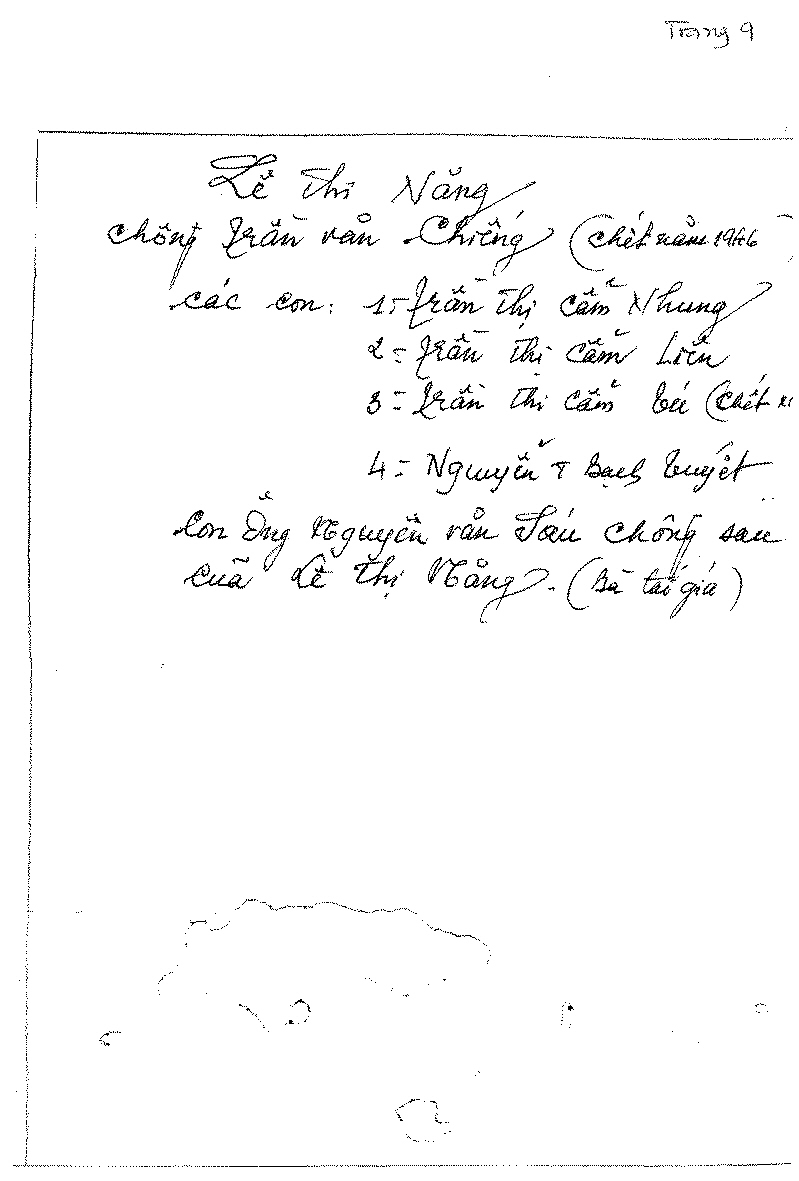 Trang 9
Lê Thị Năng
chồng Trần văn Chiếng (chết năm 1946)
các con: 1- Trần Thị Cẩm Nhung
2- Trần Thị Cẩm Liên
3- Trần Thị Cẩm Tú (chết
4- Nguyễn T Bạch Tuyết
Con Ông Nguyễn văn Sáu chồng sau
của Lê Thị Năng. (Bà tái giá)